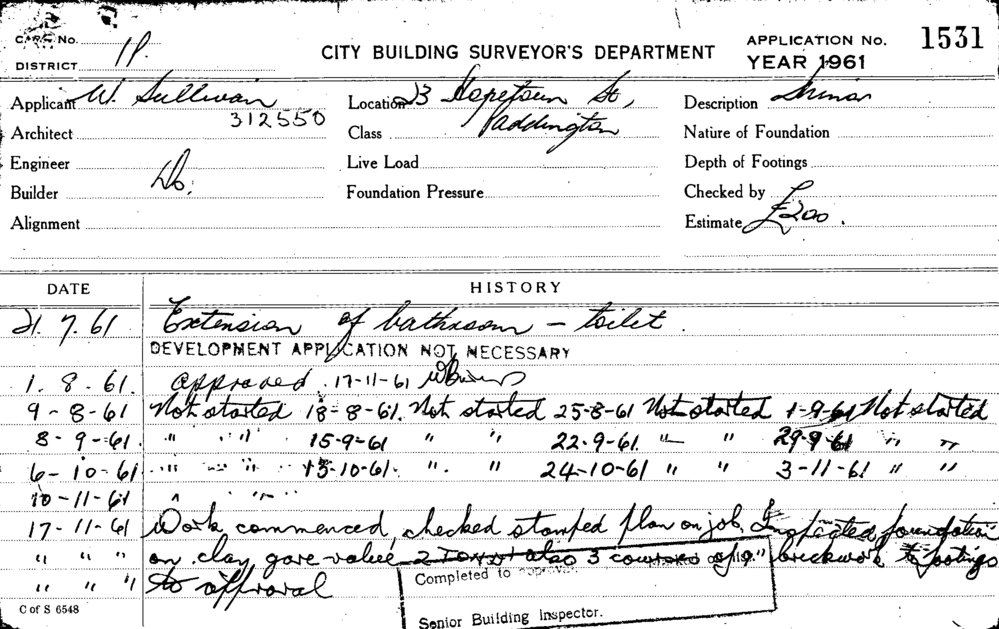 CARD No.
DISTRICT 1P.
CITY BUILDING SURVEYOR'S DEPARTMENT
APPLICATION No. 1531
YEAR 1961
Applicant W. Sullivan
312550
Location 23 Hopetoun St,
Paddington
Description Minor
Architect
Class
Nature of Foundation
Engineer
Live Load
Depth of Footings
Builder Do.
Foundation Pressure
Checked by
Alignment
Estimate £200.
DATE HISTORY
21. 7. 61 Extension of bathroom - toilet.
DEVELOPMENT APPLICATION NOT NECESSARY
1. 8. 61. approved 17-11-61
9-8-61 Not started 18-8-61. Not started 25-8-61 Not started 1-9-61 Not started
8-9-61. " " 15-9-61 " " 22.9-61. " " 29-9-61 " "
6-10-61 " " 13-10-61. " " 24-10-61 " " 3-11-61 " "
10-11-61 " "
17-11-61 Work commenced, checked stamped plan on job. Inspected foundation
" " " on clay gave value 2 also 3 courses of 9" brickwork & footings
" " " to approval
Completed to approval.
Senior Building Inspector.
C of S 6548